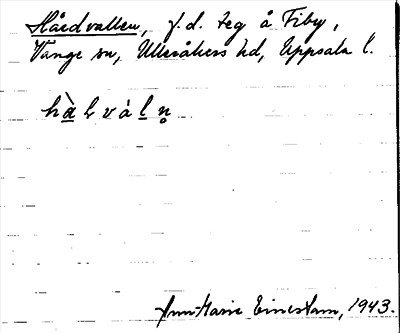 Hårdvallen, f.d. teg å Fiby,
Vänge sn, Ulleråkers hd, Uppsala l.
hà̱lvàḻn̥
Ann Marie Einestam, 1943.